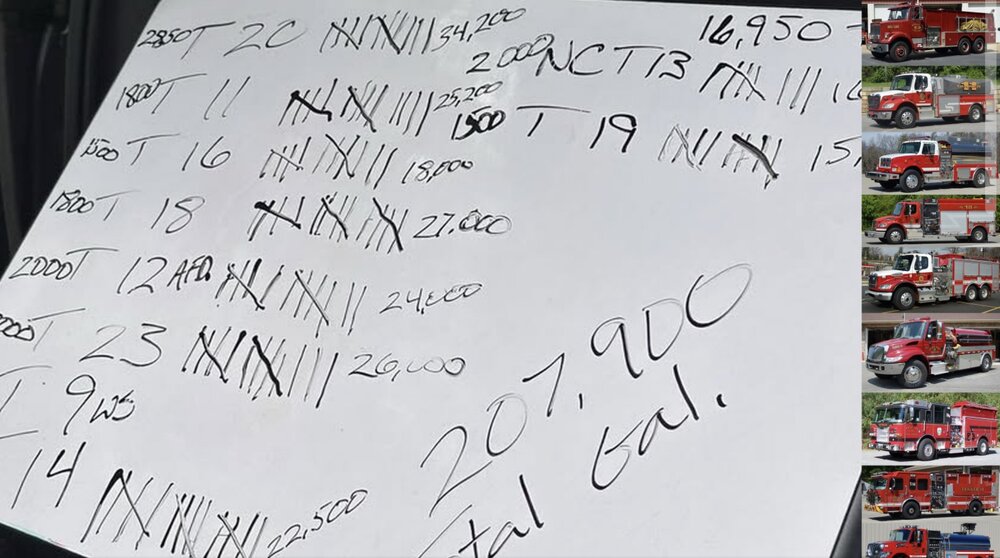 2850T 20 34,200
1800T 11 25,200
1500T 16 18,000
1800T 18 27,000
2000T 12 AFD 24,000
T 23 26,000
T 9WS
14 22,500
16,950
2000 NCT 13
1500 T 19 15,
207,900
Gal.